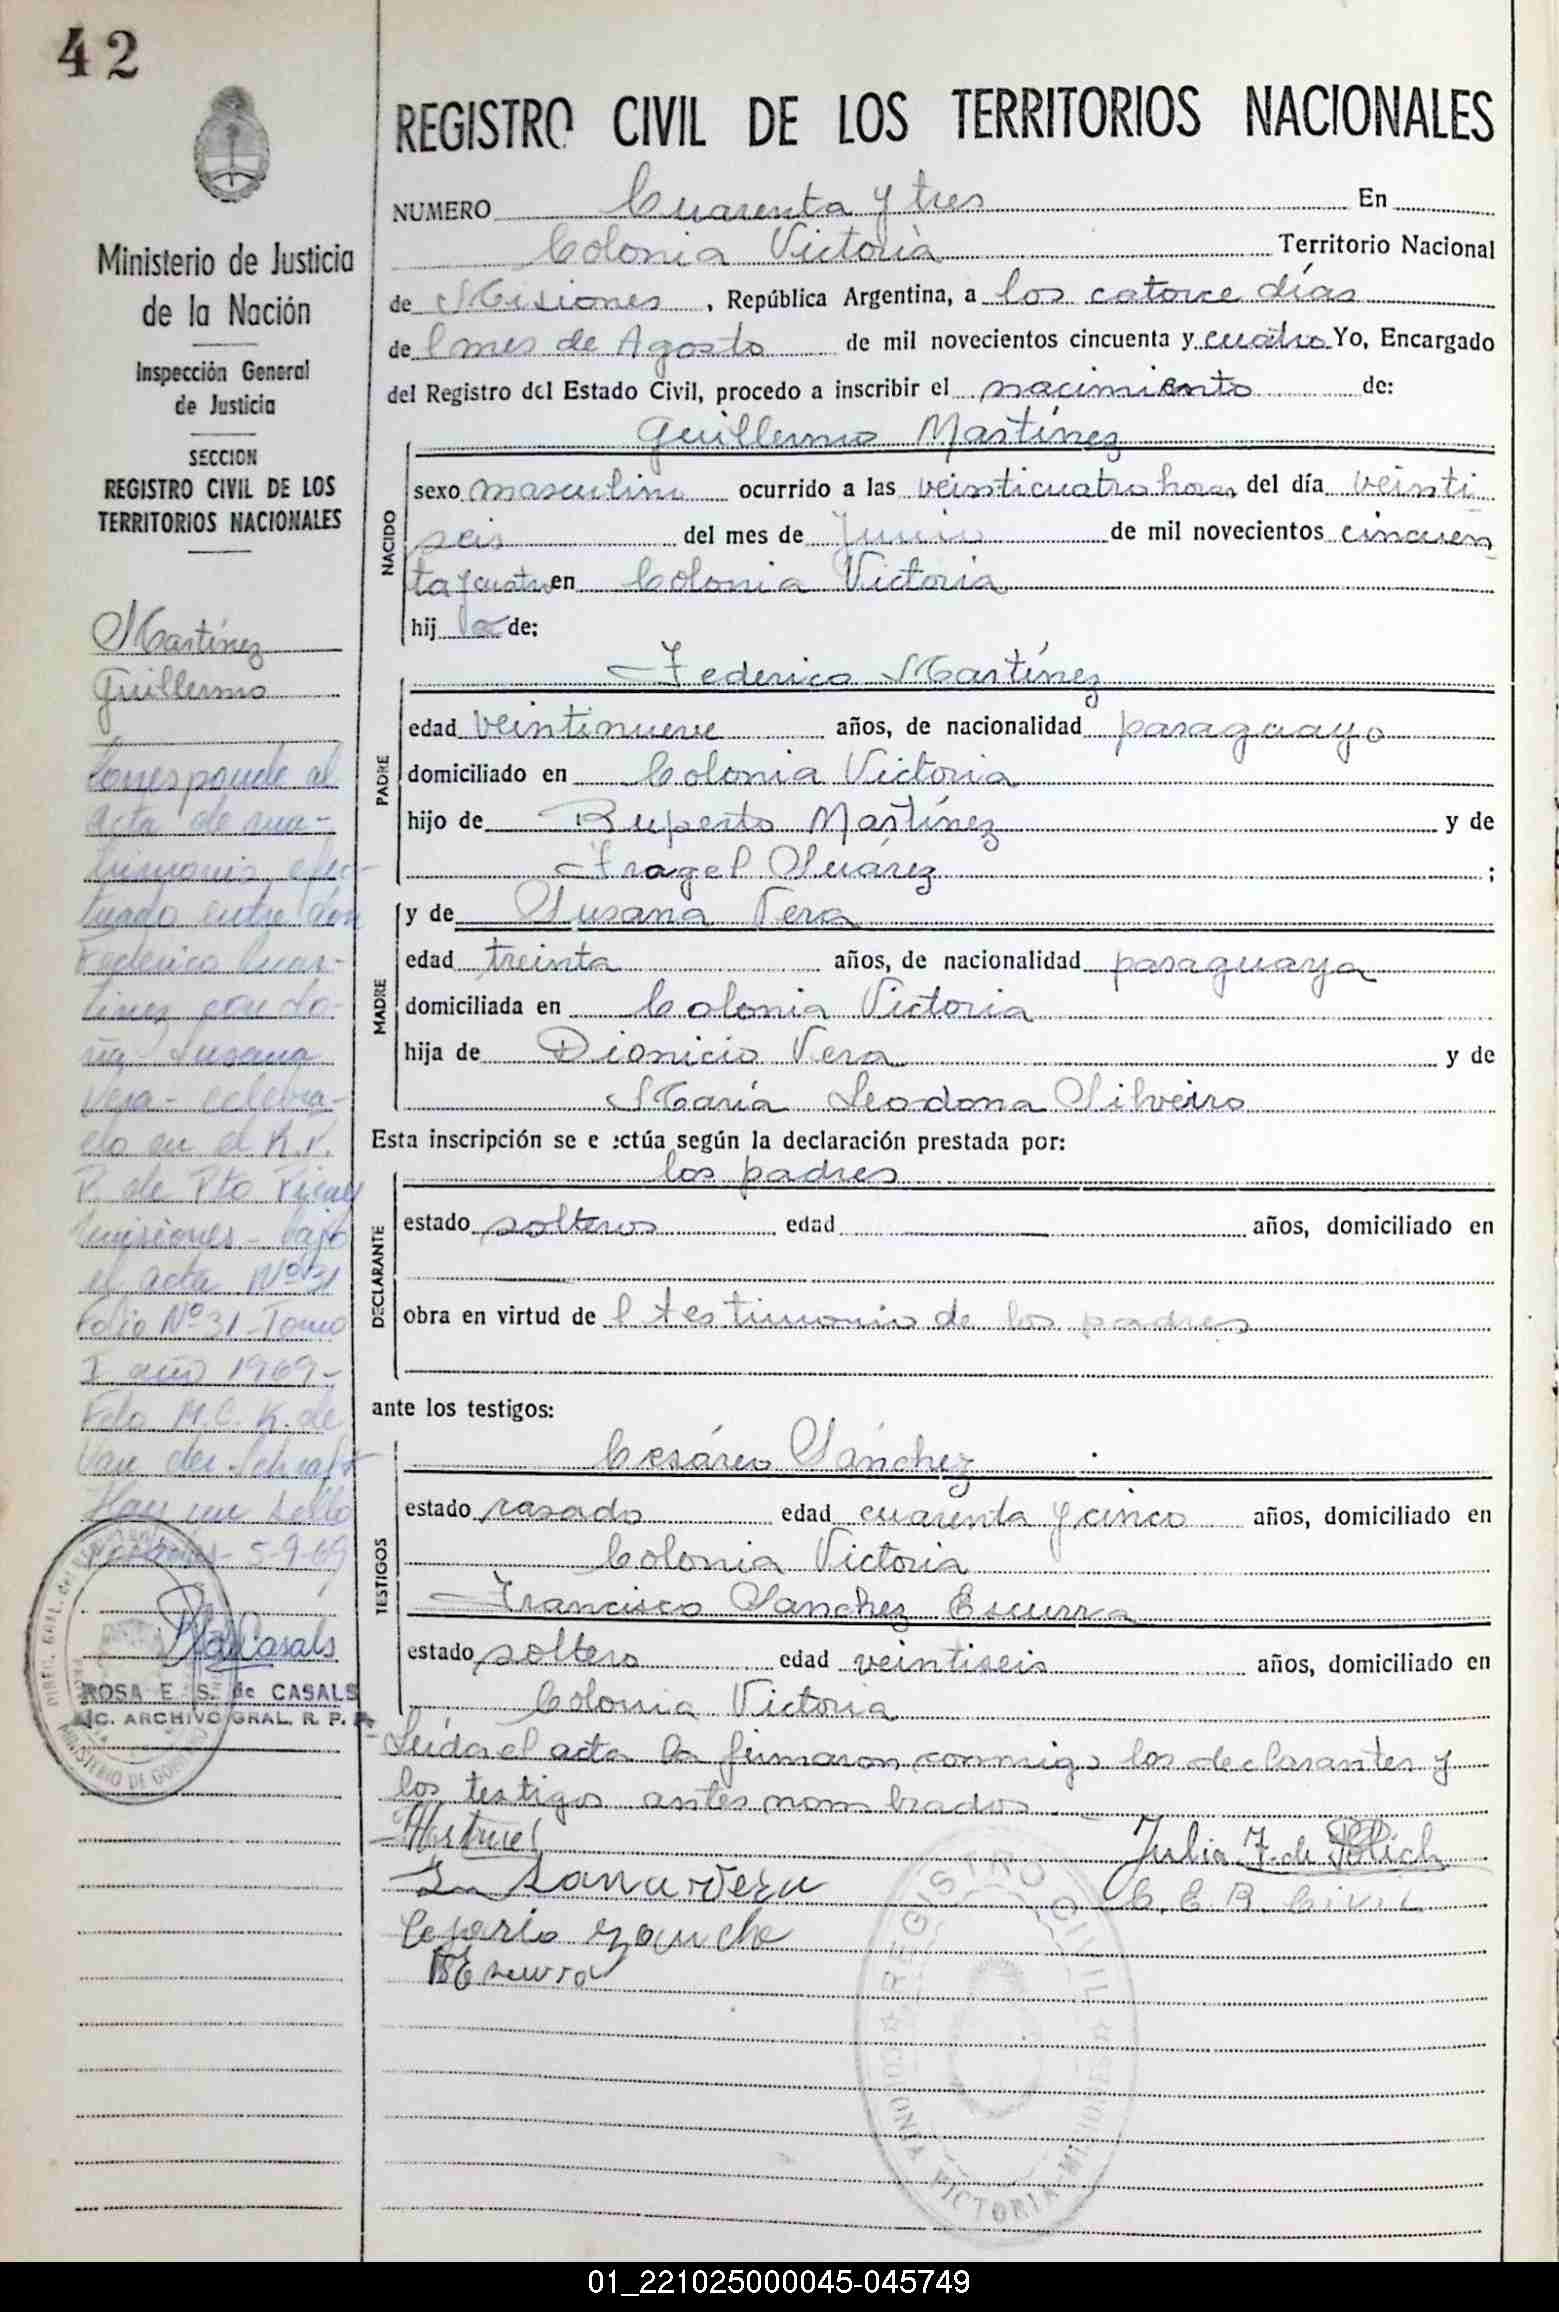 42
Ministerio de Justicia
de la Nación
Inspección General
de Justicia
SECCION
REGISTRO CIVIL DE LOS
TERRITORIOS NACIONALES
Martínez
Guillermo
Corresponde al
acta de ma-
trimonio efec-
tuado entre don
Federico Mar-
tinez con do-
ña Susana
Vera - celebra-
do en el R.P.
P. de Pto Rico
Misiones - bajo
el acta Nº 31
Folio Nº 31 - Tomo
I año 1969 -
Fdo M.C.K. de
Van der
Hay un sello
Posadas - 5-9-69
ROSA E. S. de CASALS
ARCHIVO GRAL. R. P.
REGISTRO CIVIL DE LOS TERRITORIOS NACIONALES
NUMERO Cuarenta y tres En
Colonia Victoria Territorio Nacional
de Misiones, República Argentina, a los catorce días
del mes de Agosto de mil novecientos cincuenta y cuatro Yo, Encargado
del Registro del Estado Civil, procedo a inscribir el nacimiento de:
Guillermo Martínez
NACIDO
sexo masculino ocurrido a las veinticuatro horas del día veinti
seis del mes de Junio de mil novecientos cincuen
ta y cuatro en Colonia Victoria
hij de:
Federico Martínez
PADRE
edad veintinueve años, de nacionalidad paraguayo
domiciliado en Colonia Victoria
hijo de Ruperto Martínez y de
Fragel Suárez ;
y de Susana Vera
MADRE
edad treinta años, de nacionalidad paraguaya
domiciliada en Colonia Victoria
hija de Dionicio Vera y de
María Leodona Silveiro
Esta inscripción se e ectúa según la declaración prestada por:
los padres
DECLARANTE
estado solteros edad años, domiciliado en
obra en virtud del testimonio de los padres
ante los testigos:
Cesáreo Sánchez
TESTIGOS
estado casado edad cuarenta y cinco años, domiciliado en
Colonia Victoria
Francisco Sanchez Escurra
estado soltero edad veintiseis años, domiciliado en
Colonia Victoria
Leída el acta la firmaron conmigo los declarantes y
los testigos antes nombrados
Julia F. de
C. E. R. Civil
REGISTRO CIVIL
COLONIA VICTORIA - MISIONES
01_221025000045-045749